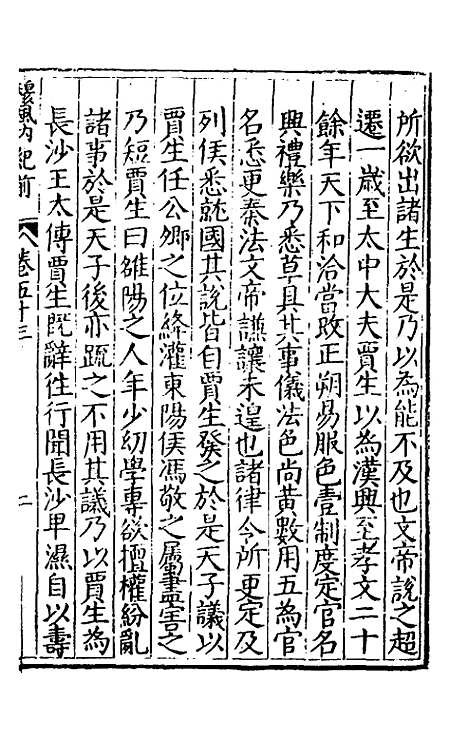 所欲出諸生於是乃以為能不及也文帝說之超
遷一歲至太中大夫賈生以為漢興至孝文二十
餘年天下和洽當改正朔易服色壹制度定官名
興禮樂乃悉草具其事儀法色尚黃數用五為官
名悉更秦法文帝謙讓未遑也諸律令所更定及
列侯悉就國其說皆自賈生發之於是天子議以
賈生任公卿之位絳灌東陽侯馮敬之屬盡害之
乃短賈生曰雒陽之人年少幼學專欲擅權紛亂
諸事於是天子後亦疏之不用其議乃以賈生為
長沙王太傅賈生既辭往行聞長沙卑濕自以壽
紀前
卷五十三
二